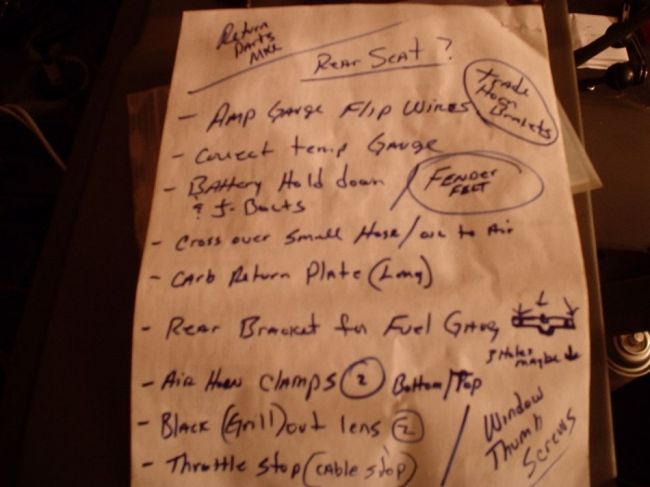 Return
Parts
MKE
Rear Seat?
Trade
Horn
Brackets
- Amp Gauge Flip Wires
- Correct temp Gauge
- Battery Hold down
& J-Bolts
Fender
Felt
- Cross over Small Hose/oil to Air
- Carb Return Plate (Long)
- Rear Bracket for Fuel Gauge
3 Holes
maybe
- Air Horn Clamps 2 Bottom/Top
- Black (Grill) out lens 2
- Throttle Stop (cable stop)
Window
Thumb
Screws